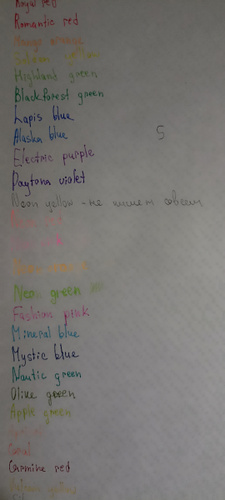 Royal red
Romantic red
Mango orange
yellow
Highland green
Blackforest green
Lapis blue
Alaska blue
5
Electric purple
Daytona violet
Neon yellow - не пишет совсем
Neon green
Fashion pink
Mineral blue
Mystic blue
Nautic green
Olive green
Apple green
Coral
Carmine red
yellow